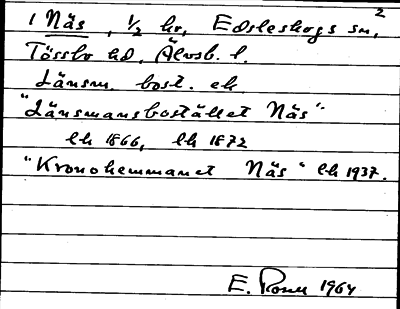 2
1 Näs, 1/2 hr, Edsleskogs sn,
Tössbo hd, Älvsb. l.
Länsm. bost. ek
"Länsmansbostället Näs"
lh 1866, lh 1872
"Kronohemmanet Näs" lh 1937.
E. 1964